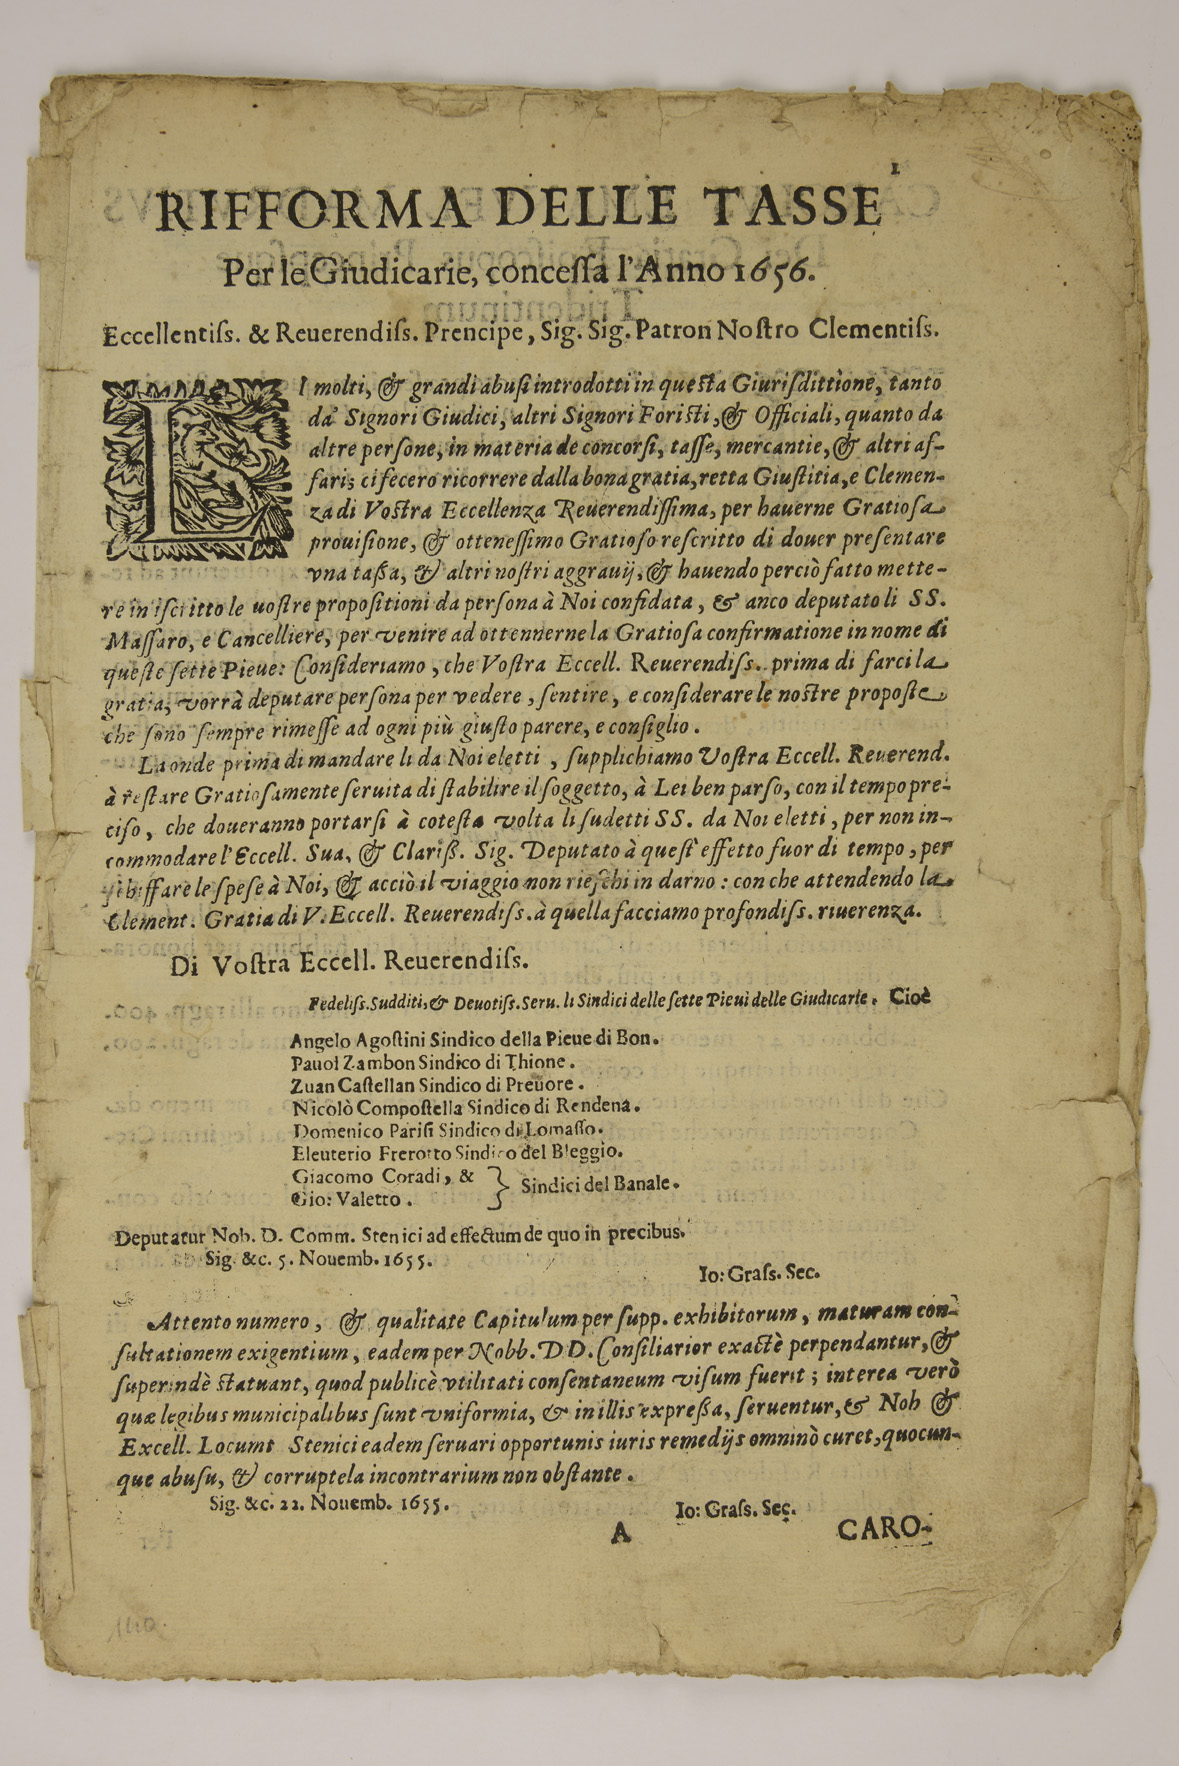 1.
RIFFORMA DELLE TASSE
Per le Giudicarie, conceſſa l'Anno 1656.
Eccellentiſs. & Reuerendiſs. Prencipe, Sig. Sig. Patron Noſtro Clementiſs.
LI molti, & grandi abuſi introdotti in queſta Giuriſdittione, tanto
da Signori Giudici, altri Signori Foriſti, & Officiali, quanto da
altre perſone, in materia de concorſi, taſſe, mercantie, & altri af-
fari; ci fecero ricorrere dalla bona gratia, retta Giuſtitia, e Clemen-
za di Voſtra Eccellenza Reuerendiſſima, per hauerne Gratioſa
prouiſione, & otteneſſimo Gratioſo reſcritto di douer preſentare
vna taßa, & altri noſtri aggrauij, & hauendo perciò fatto mette-
re in iſcritto le uoſtre propoſitioni da perſona à Noi confidata, & anco deputato li SS.
Maſſaro, e Cancelliere, per venire ad ottennerne la Gratioſa confirmatione in nome di
queſte ſette Pieue: Conſideriamo, che Voſtra Eccell. Reuerendiſs. prima di farci la
gratia, vorrà deputare perſona per vedere, ſentire, e conſiderare le noſtre propoſte
che ſono ſempre rimeſſe ad ogni più giuſto parere, e conſiglio.
Laonde prima di mandare li da Noi eletti, ſupplichiamo Voſtra Eccell. Reuerend.
à reſtare Gratioſamente ſeruita di ſtabilire il ſoggetto, à Lei ben parſo, con il tempo pre-
ciſo, che doueranno portarſi à coteſta volta li ſudetti SS. da Noi eletti, per non in-
commodare l'Eccell. Sua, & Clariß. Sig. Deputato à queſt'effetto fuor di tempo, per
ſchiffare le ſpeſe à Noi, & acciò il viaggio non rieſchi in darno: con che attendendo la
Clement. Gratia di V. Eccell. Reuerendiſs. à quella facciamo profondiſs. riuerenza.
Di Voſtra Eccell. Reuerendiſs.
Fedeliſs. Sudditi, & Deuotiſs. Seru. li Sindici delle ſette Pieui delle Giudicarie. Cioè
Angelo Agoſtini Sindico della Pieue di Bon.
Pauol Zambon Sindico di Thione.
Zuan Caſtellan Sindico di Preuore.
Nicolò Compoſtella Sindico di Rendena.
Domenico Pariſi Sindico di Lomaſſo.
Eleuterio Frerotto Sindico del Bleggio.
Giacomo Coradi, &
Gio: Valetto. } Sindici del Banale.
Deputatur Nob. D. Comm. Stenici ad effectum de quo in precibus.
Sig. &c. 5. Nouemb. 1655.
Io: Graſs. Sec.
Attento numero, & qualitate Capitulum per ſupp. exhibitorum, maturam con-
ſultationem exigentium, eadem per Nobb. DD. Conſiliarior exactè perpendantur, &
ſuperindè ſtatuant, quod publicè vtilitati conſentaneum viſum fuerit; interea verò
quæ legibus municipalibus ſunt vniformia, & in illis expreßa, ſeruentur, & Nob &
Excell. Locumt Stenici eadem ſeruari opportunis iuris remedijs omninò curet, quocun-
que abuſu, & corruptela incontrarium non obſtante.
Sig. &c. 22. Nouemb. 1655.
Io: Graſs. Sec.
A
CARO-